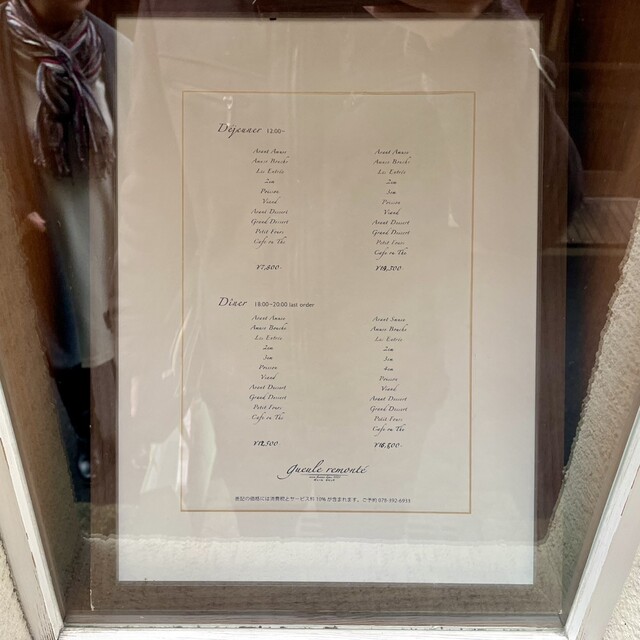 Déjeuner 12:00~
Avant Amuse
Amuse Bouche
Les Entrée
2em
Poisson
Viand
Avant Dessert
Grand Dessert
Petit Fours
Cafe ou The
¥7,800-
Avant Amuse
Amuse Bouche
Les Entrée
2em
3em
Poisson
Viand
Avant Dessert
Grand Dessert
Petit Fours
Cafe ou The
Dîner 18:00~20:00 last order
Avant Amuse
Amuse Bouche
Les Entrée
2em
3em
Poisson
Viand
Avant Dessert
Grand Dessert
Petit Fours
Cafe ou The
¥12,500
Avant Amuse
Amuse Bouche
Les Entrée
2em
3em
4em
Poisson
Viand
Avant Dessert
Grand Dessert
Petit Fours
Cafe ou The
¥16,800-
gueule remonté
表記の価格には消費税とサービス料10%が含まれます。ご予約 078-392-6933